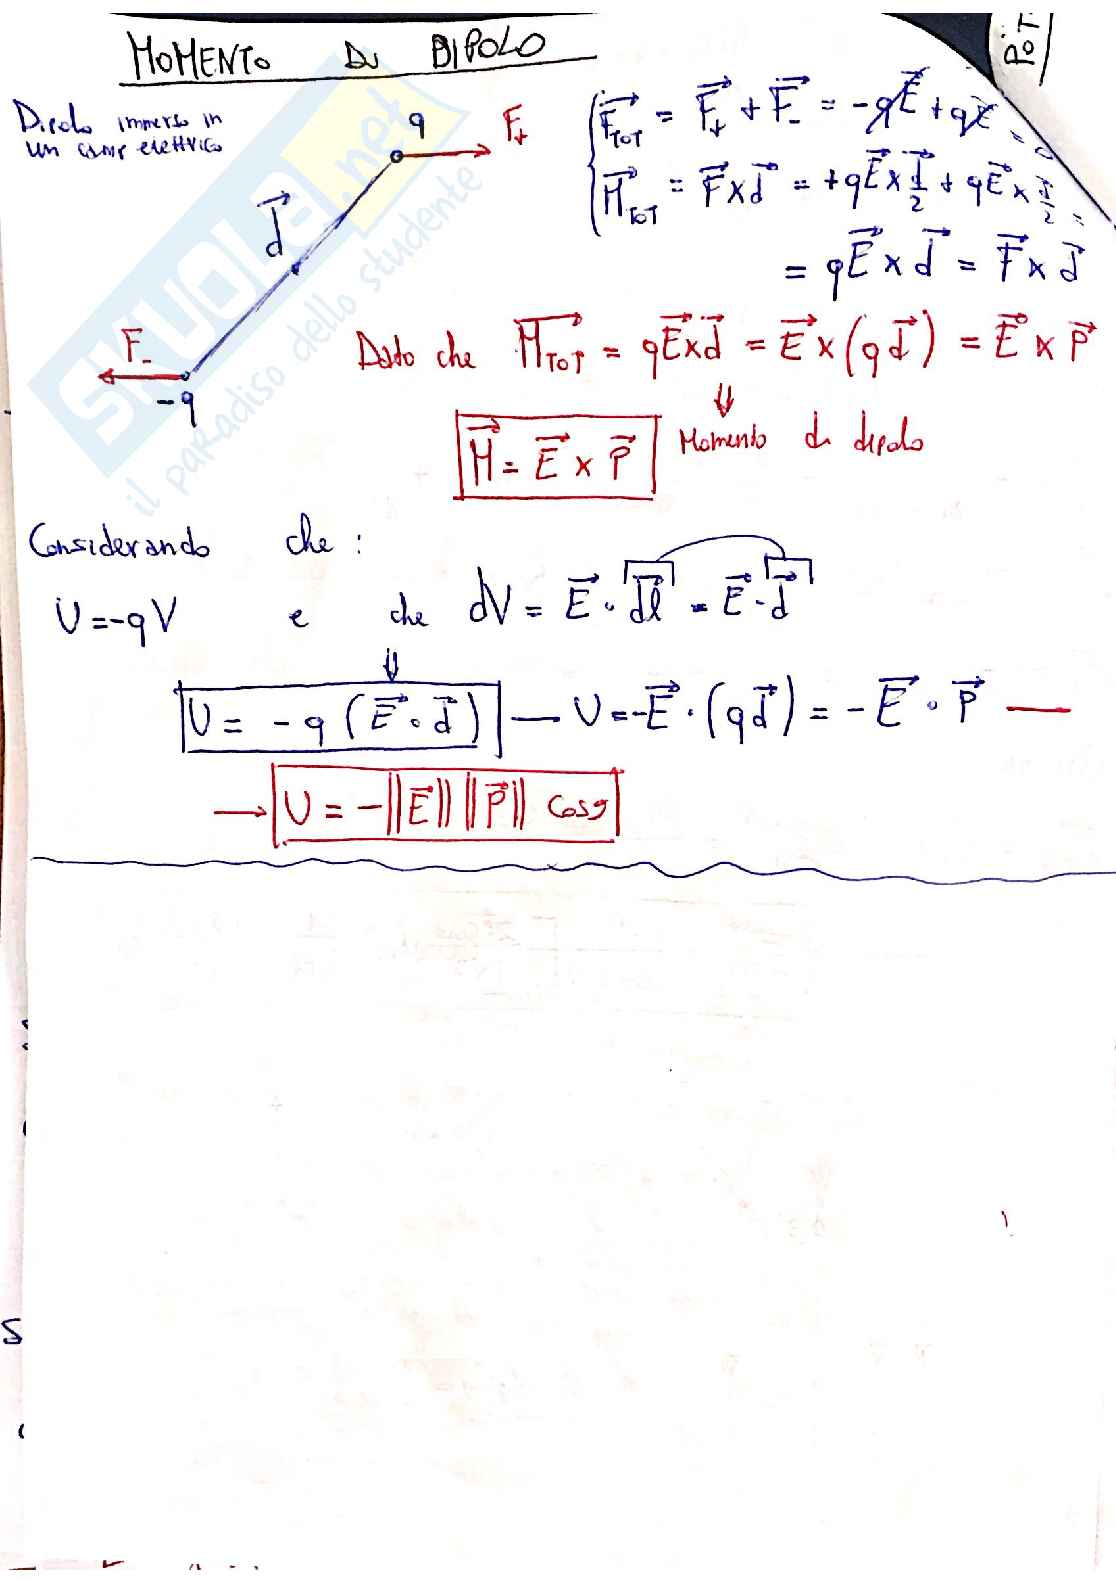 MOMENTO DI DIPOLO
POT.
Dipolo immerso in
un campo elettrico
q
F₊
d⃗
F₋
-q
F⃗_TOT = F⃗₊ + F⃗₋ = -qE⃗ + qE⃗ = 0
M⃗_TOT = F⃗ x d⃗ = +qE⃗ x d⃗/2 + qE⃗ x d⃗/2 =
= qE⃗ x d⃗ = F⃗ x d⃗
Dato che M⃗_TOT = qE⃗ x d⃗ = E⃗ x (qd⃗) = E⃗ x P⃗
⇓
M⃗ = E⃗ x P⃗ Momento di dipolo
Considerando che :
U = -qV e che dV = E⃗ · dl⃗ = E⃗ · d⃗
⇓
U = -q (E⃗ · d⃗) — U = -E⃗ · (qd⃗) = -E⃗ · P⃗ —
→ U = -||E⃗|| ||P⃗|| cosϑ
SKUOLA.net
il paradiso dello studente
S